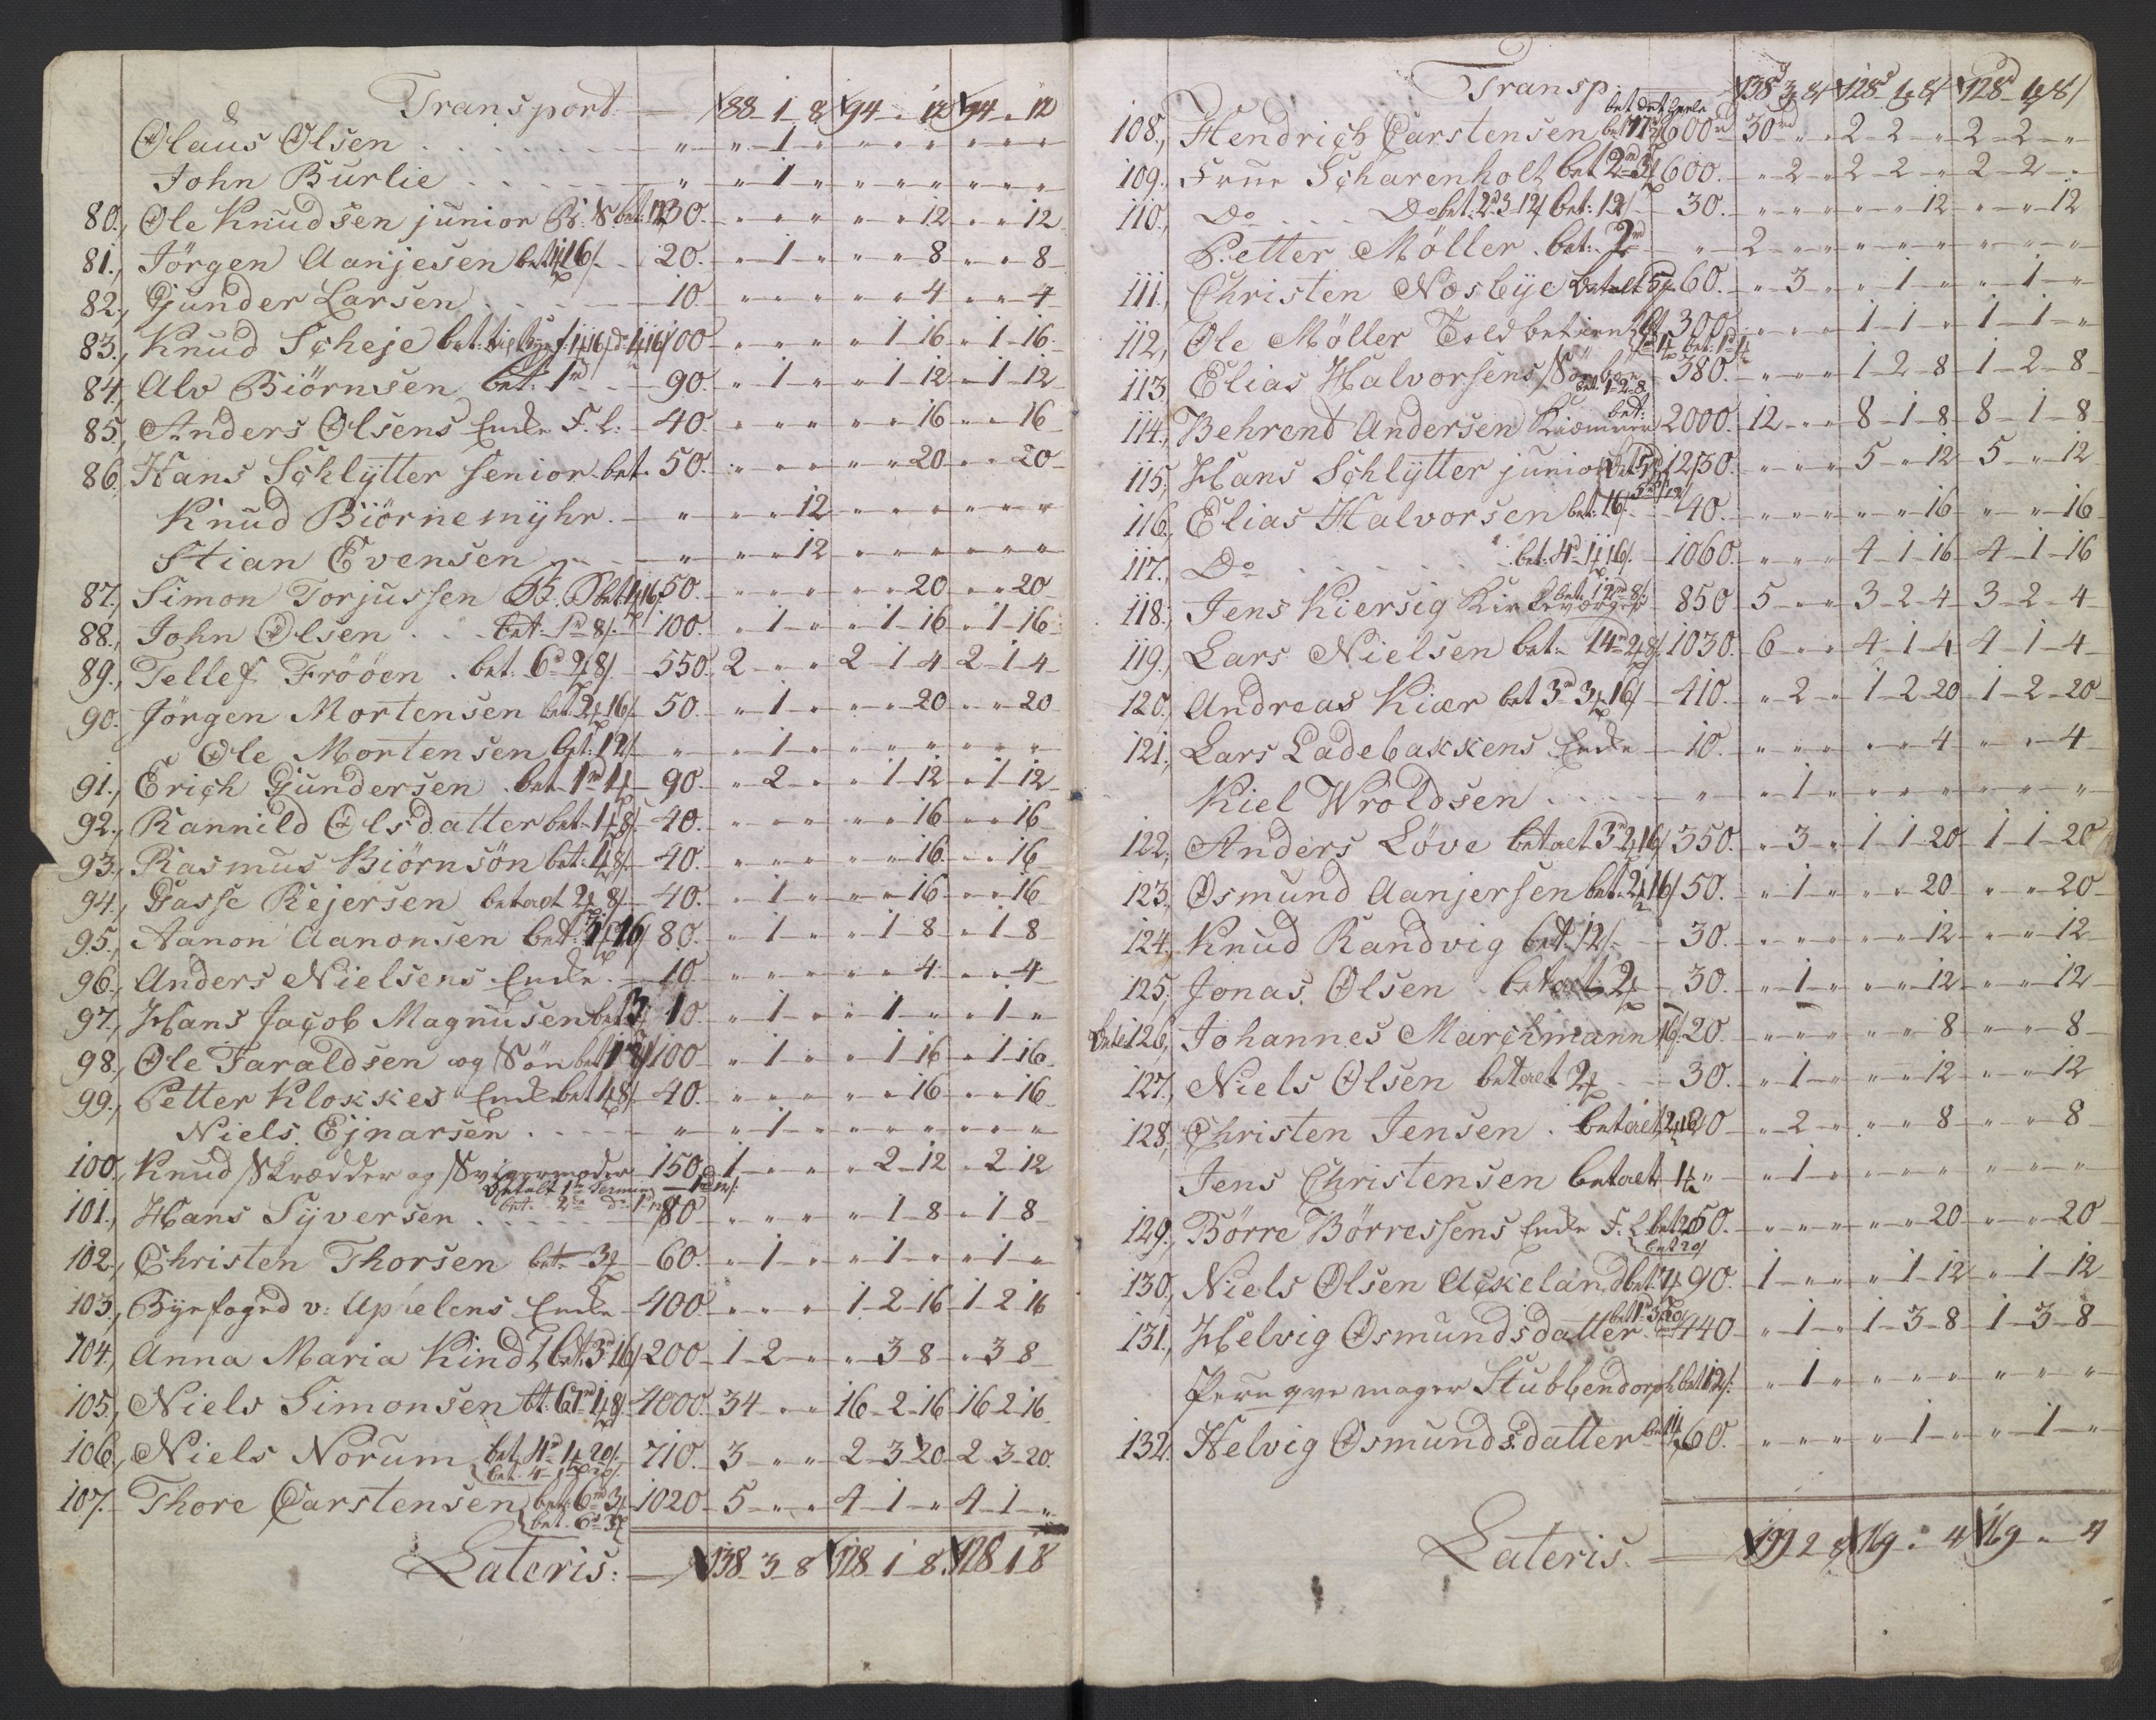 Transport. — 88 1 8 94 " 12 94 " 12
Olaus Olsen " " 1 " " " " " " "
John Burlie " " 1 " " " " " " "
80., Ole Knudsen junior B: S. bet: 12 30. " " " " " 12 " " 12
81., Jörgen Aanjesen bet 16/ 20. " 1 " " " 8 " " 8
82., Gunder Larsen 10 " " " " " 4 " " 4
83., Knud Scheje bet: 100 " " " " 1 16 " 1 16
84., Alv Biörnsen bet: 1rd 90. " 1 " " 1 12 " 1 12
85., Anders Olsens Enke F. L: 40. " " " " " 16 " " 16
86., Hans Schlytter senior bet. 50. " " " " " 20 " " 20
Knud Biörnemyhr. " " " 12 " " " " " "
Stian Evensen " " " 12 " " " " " "
87., Simon Torjussen B. S. bet 16/ 50. " " " " " 20 " " 20
88., John Olsen bet. 1rd 8/. 100. " 1 " " 1 16 " 1 16
89., Tellef Frööen bet: 6d 2 8/ 550. 2 " " 2 1 4 2 1 4
90. Jörgen Mortensen bet: 2 16/ 50. " 1 " " " 20 " " 20
Ole Mortensen bet: 12/ " " 1 " " " " " " "
91., Erich Gundersen bet 1rd 1 90. " 2 " " 1 12 " 1 12
92., Rannild Olsdatter bet: 1 8/ 40. " " " " " 16 " " 16
93., Rasmus Biörnsön bet: 1 8/ 40. " " " " " 16 " " 16
94., Gasse Rejersen betalt 2 8/ 40. " 1 " " " 16 " " 16
95., Aanon Aanonsen bet: 3 16/ 80. " 1 " " 1 8 " 1 8
96., Anders Nielsens Enke 10 " " " " " 4 " " 4
97., Hans Jacob Magnusen bet 3 10 " 1 " " 1 " " 1 "
98., Ole Taraldsen og Sön bet 100 " 1 " " 1 16 " 1 16
99., Petter Klokkes Enke bet 1 8/ 40. " " " " " 16 " " 16
Niels Ejnarsen " " 1 " " " " " " "
100., Knud Skrædder og Svigermoder 150. 1 " " " 2 12 " 2 12
betalt 1te Termin 1rd 12/.
101., Hans Syversen bet. 2de do 80 " " " " 1 8 " 1 8
102., Christen Thorsen bet 3 60. " 1 " " 1 " " 1 "
103., Byefoged v: Aphelens Enke 400 " " " 1 2 16 1 2 16
104., Anna Maria Kind bet: 3rd 16/ 200 1 2 " " 3 8 " 3 8
105., Niels Simonsen bt: 67rd 1 8/ 4000 34 " " 16 2 16 16 2 16
106., Niels Norum bet 4d 1 20/. 710. 3 " " 2 3 20 2 3 20.
bet. 4 1 20/.
107. Thore Carstensen bet: 6rd 3 1020 5 " " 4 1 " 4 1 "
bet. 6d 3
Lateris: — 138 3 8 128 1 8. 128 1 8
Transp. 138 3 8/ 128 1 8/ 128 1 8/
bet det heele
108., Hendrich Carstensen 600rd 30rd " " 2 2 " 2 2 "
109., Frue Scharenholt bet 2rd 3 600. " 2 " 2 2 " 2 2 "
110., Do Do bet: 2d 3 12/ bet: 12/ 30. " " " " " 12 " " 12
Petter Möller. bet: 2rd " 2 " " " " " " " "
111., Christen Næsbye betalt 5 60. " 3 " " 1 " " 1 "
112., Ole Möller Toldbetient bt 300. " " " 1 1 " 1 1 "
113., Elias Halvorsens Sönbær 380. " " " 1 2 8 1 2 8
bet. 1 2 8
114., Behrend Andersen Kræmmer bet: 2000. 12 " " 8 1 8 8 1 8
115., Hans Schlytter junior 1230. " " " 5 " 12 5 " 12
116., Elias Halvorsen bet: 16/. 40. " " " " " 16 " " 16
117., Do bet: 4d 1 16/. 1060. " " " 4 1 16 4 1 16
118., Jens Kiersig Kirkeværge 850 5 " " 3 2 4 3 2 4
119., Lars Nielsen bet: 14rd 2 8/ 1030. 6 " " 4 1 4 4 1 4
120., Andreas Kiær bet 3rd 3 16/ 410. " 2 " 1 2 20 1 2 20
121., Lars Ladebakkens Enke 10. " " " " " 4 " " 4
Kiel Wroldsen " " 1 " " " " " " "
122., Anders Löve betalt 3rd 2 16/ 350. " 3 " 1 1 20 1 1 20
123., Osmund Aanjersen bet: 2 16/ 50. " 1 " " " 20 " " 20
124., Knud Randvig bet: 12/. 30. " " " " " 12 " " 12
125., Jonas Olsen betalt 2 30. " 1 " " " 12 " " 12
126., Johannes Marckmann 16/. 20. " " " " " 8 " " 8
127., Niels Olsen betalt 2 30. " 1 " " " 12 " " 12
128., Christen Jensen. betalt 2 16 20 " 2 " " " 8 " " 8
Jens Christensen betalt 1 " " 1 " " " " " " "
129., Börre Börressens Enke F. L. bet 20 50. " " " " " 20 " " 20
bet 20/
130., Niels Olsen Ackeland bet: 90. 1 " " " 1 12 " 1 12
131., Helvig Osmundsdatter 440 " 1 " 1 3 8 1 3 8
Peruqvemager Stubbendorph bet 12/: " 1 " " " " " " "
132. Helvig Osmundsdatter bet 60. " " " " 1 " " 1 "
Lateris. — 199 2 8 169 " 4 169 " 4